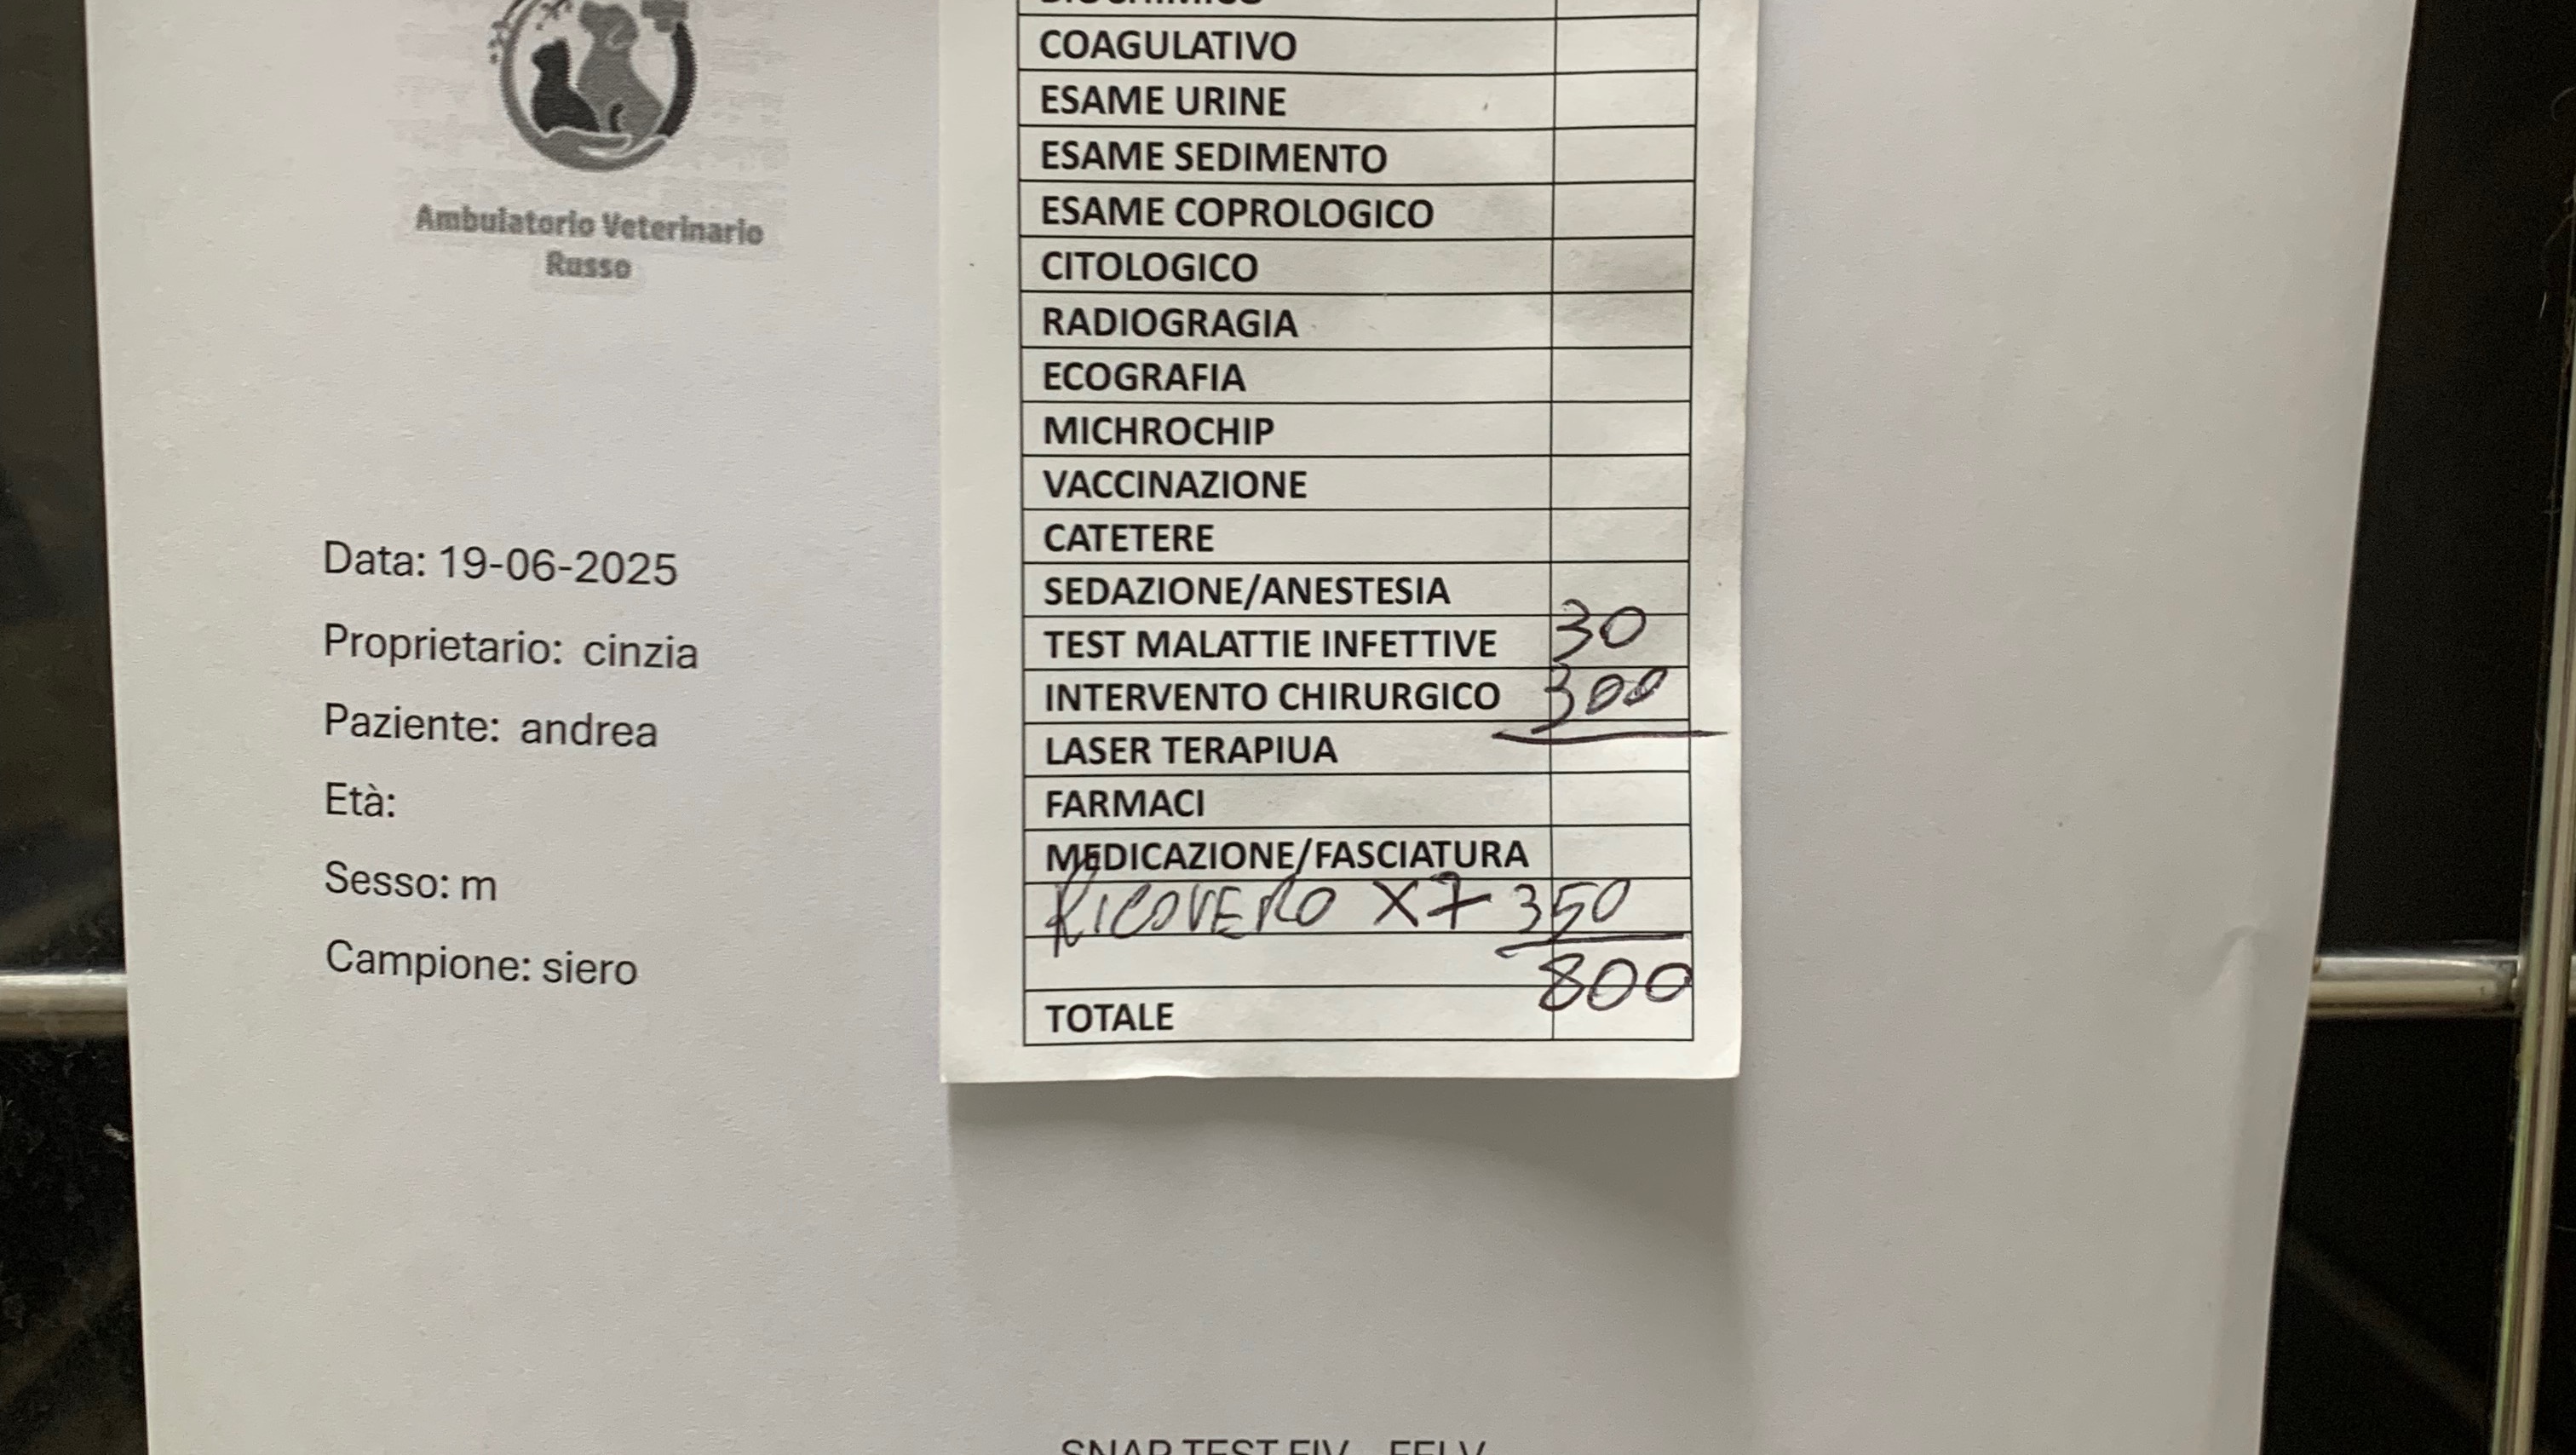 Ambulatorio Veterinario
Russo
Data: 19-06-2025
Proprietario: cinzia
Paziente: andrea
Età:
Sesso: m
Campione: siero
COAGULATIVO
ESAME URINE
ESAME SEDIMENTO
ESAME COPROLOGICO
CITOLOGICO
RADIOGRAGIA
ECOGRAFIA
MICHROCHIP
VACCINAZIONE
CATETERE
SEDAZIONE/ANESTESIA
TEST MALATTIE INFETTIVE 30
INTERVENTO CHIRURGICO 300
LASER TERAPIUA
FARMACI
MEDICAZIONE/FASCIATURA
RICOVERO X7 350
800
TOTALE
SNAP TEST FIV - FELV